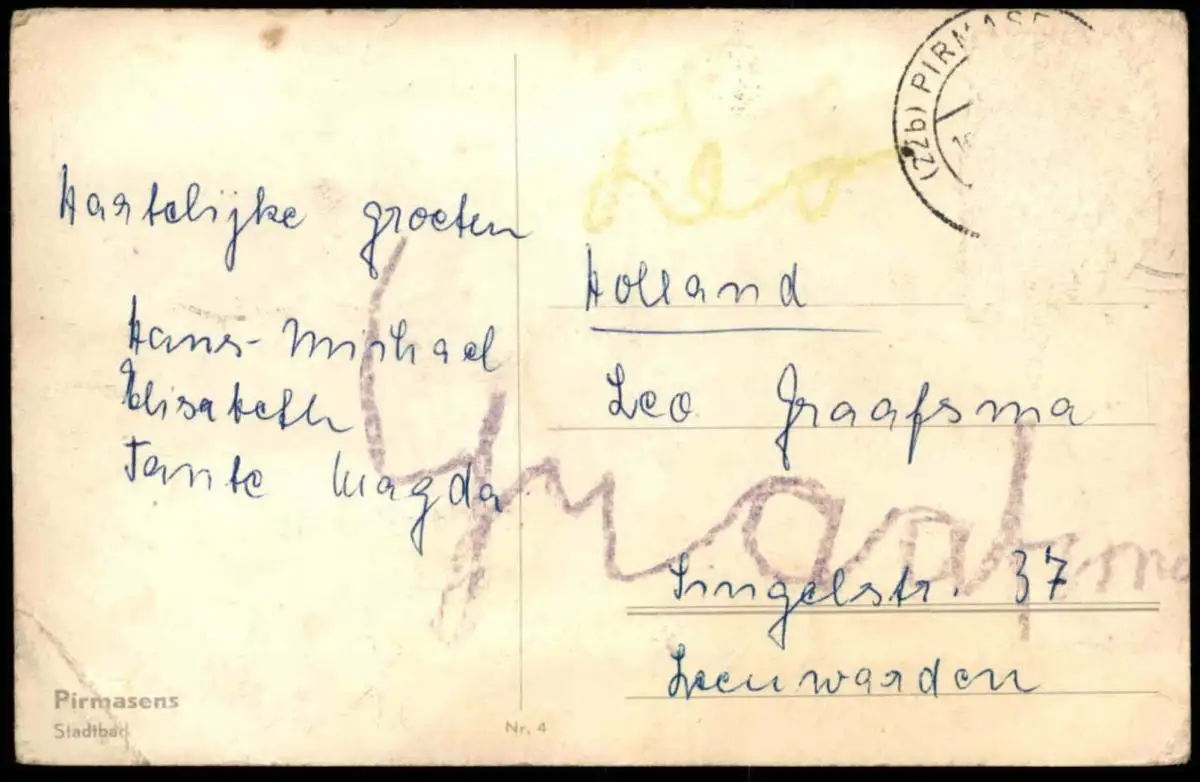 Hartelijke groeten
Hans-Michael
Elisabeth
Tante Magda
Pirmasens
Stadtbad
Nr. 4
(22b) PIRMASE
Leo
Holland
Leo Graafsma
Graafsma
Singelstr. 37
Leeuwarden